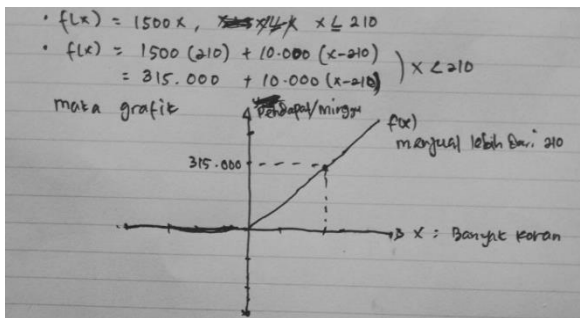 • f(x) = 1500 x, x ≤ 210
• f(x) = 1500 (210) + 10.000 (x-210)
= 315.000 + 10.000 (x-210) ) x < 210
maka grafik
Pendapat/minggu
f(x)
menjual lebih Dari 210
315.000
x : Banyak koran